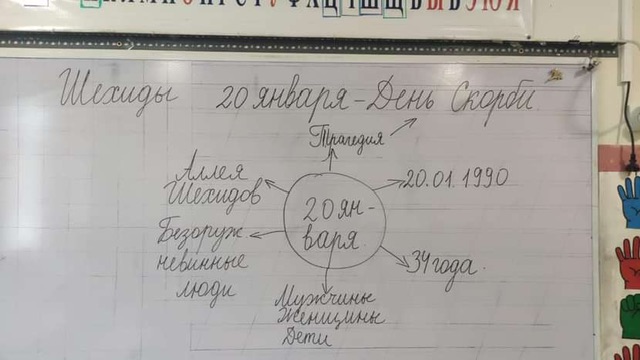 Шехиды 20 января – День Скорби
Трагедия
Аллея
Шехидов
20.01.1990
20 ян-
варя
Безоруж
невинные
люди
34 года
Мужчины
Женщины
Дети